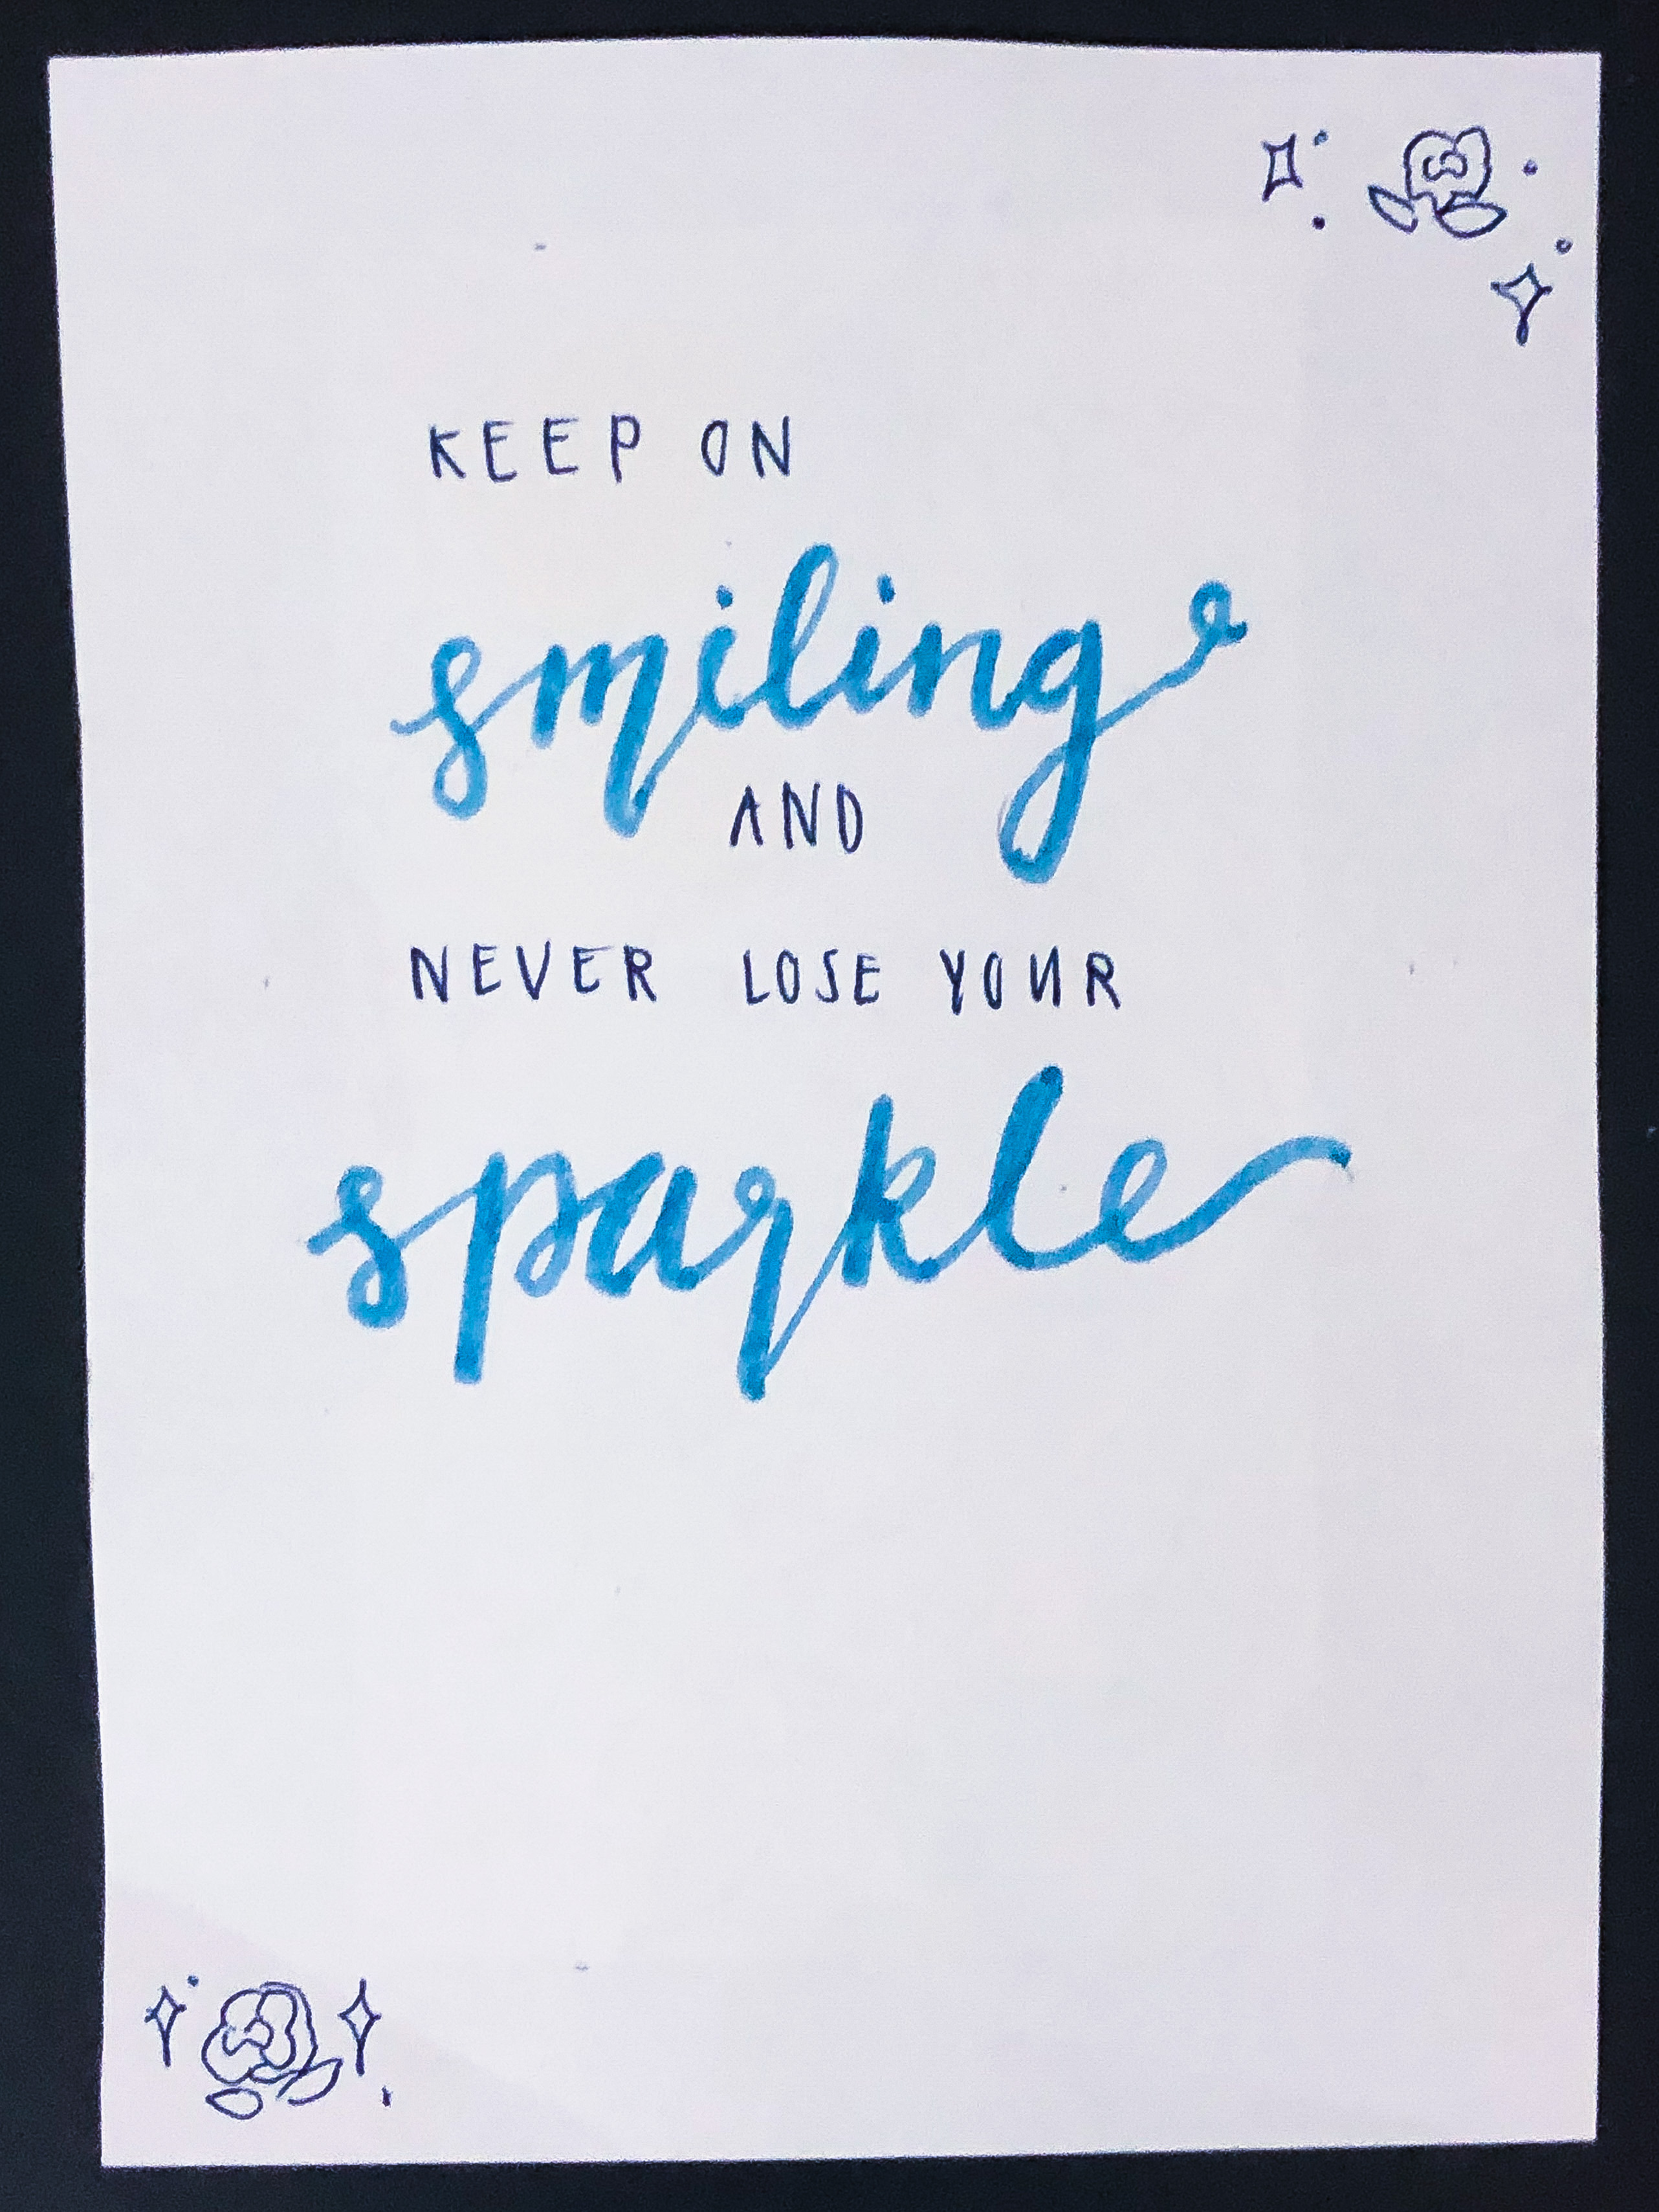 KEEP ON
smiling
AND
NEVER LOSE YOUR
sparkle